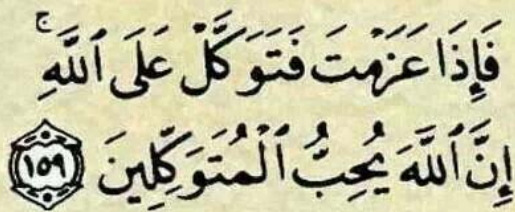 فَإِذَا عَزَمْتَ فَتَوَكَّلْ عَلَى ٱللَّهِ ۚ
إِنَّ ٱللَّهَ يُحِبُّ ٱلْمُتَوَكِّلِينَ ١٥٩